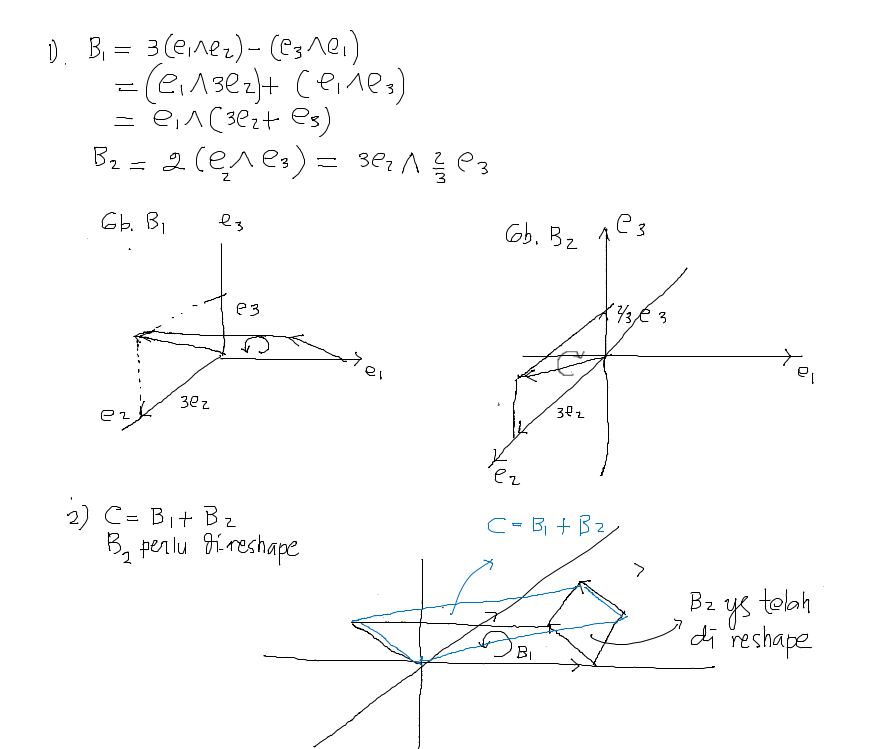 1). B₁ = 3(e₁∧e₂) - (e₃∧e₁)
= (e₁∧3e₂) + (e₁∧e₃)
= e₁∧(3e₂+ e₃)
B₂ = 2(e₂∧e₃) = 3e₂ ∧ 2/3 e₃
Gb. B₁
e₃
e₃
e₁
3e₂
e₂
Gb. B₂
e₃
2/3 e₃
e₁
3e₂
e₂
2) C = B₁ + B₂
B₂ perlu di-reshape
C = B₁ + B₂
B₁
B₂ yg telah
di reshape